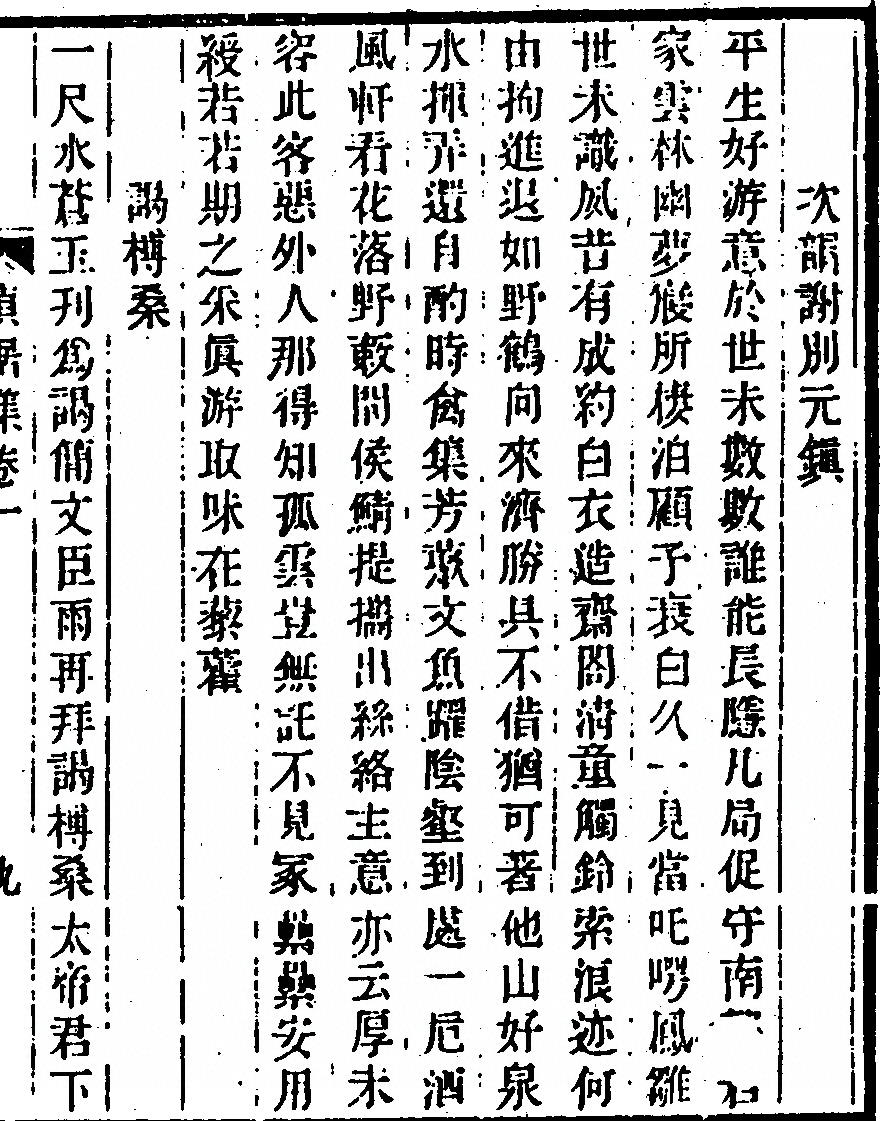 次韻謝別元鎮
平生好游意於世未數數誰能長隱几局促守南
家雲林幽夢後所棲泊顧予衰白久一見當叱咢鳳雛
世未識夙昔有成約白衣造齋閤清童觸鈴索浪迹何
由拘進退如野鶴向來濟勝具不借猶可著他山好泉
水揮弄還自酌時禽集芳叢文魚躍陰壑到處一卮酒
風軒看花落野蔌間侯鯖提攜出絲絡主意亦云厚未
容此客惡外人那得知孤雲豈無託不見冢纍纍安用
綬若若期之采真游取味在藜藿
謁榑桑
一尺水蒼玉刊為謁簡文臣雨再拜謁榑桑太帝君下
貞居集卷一
九